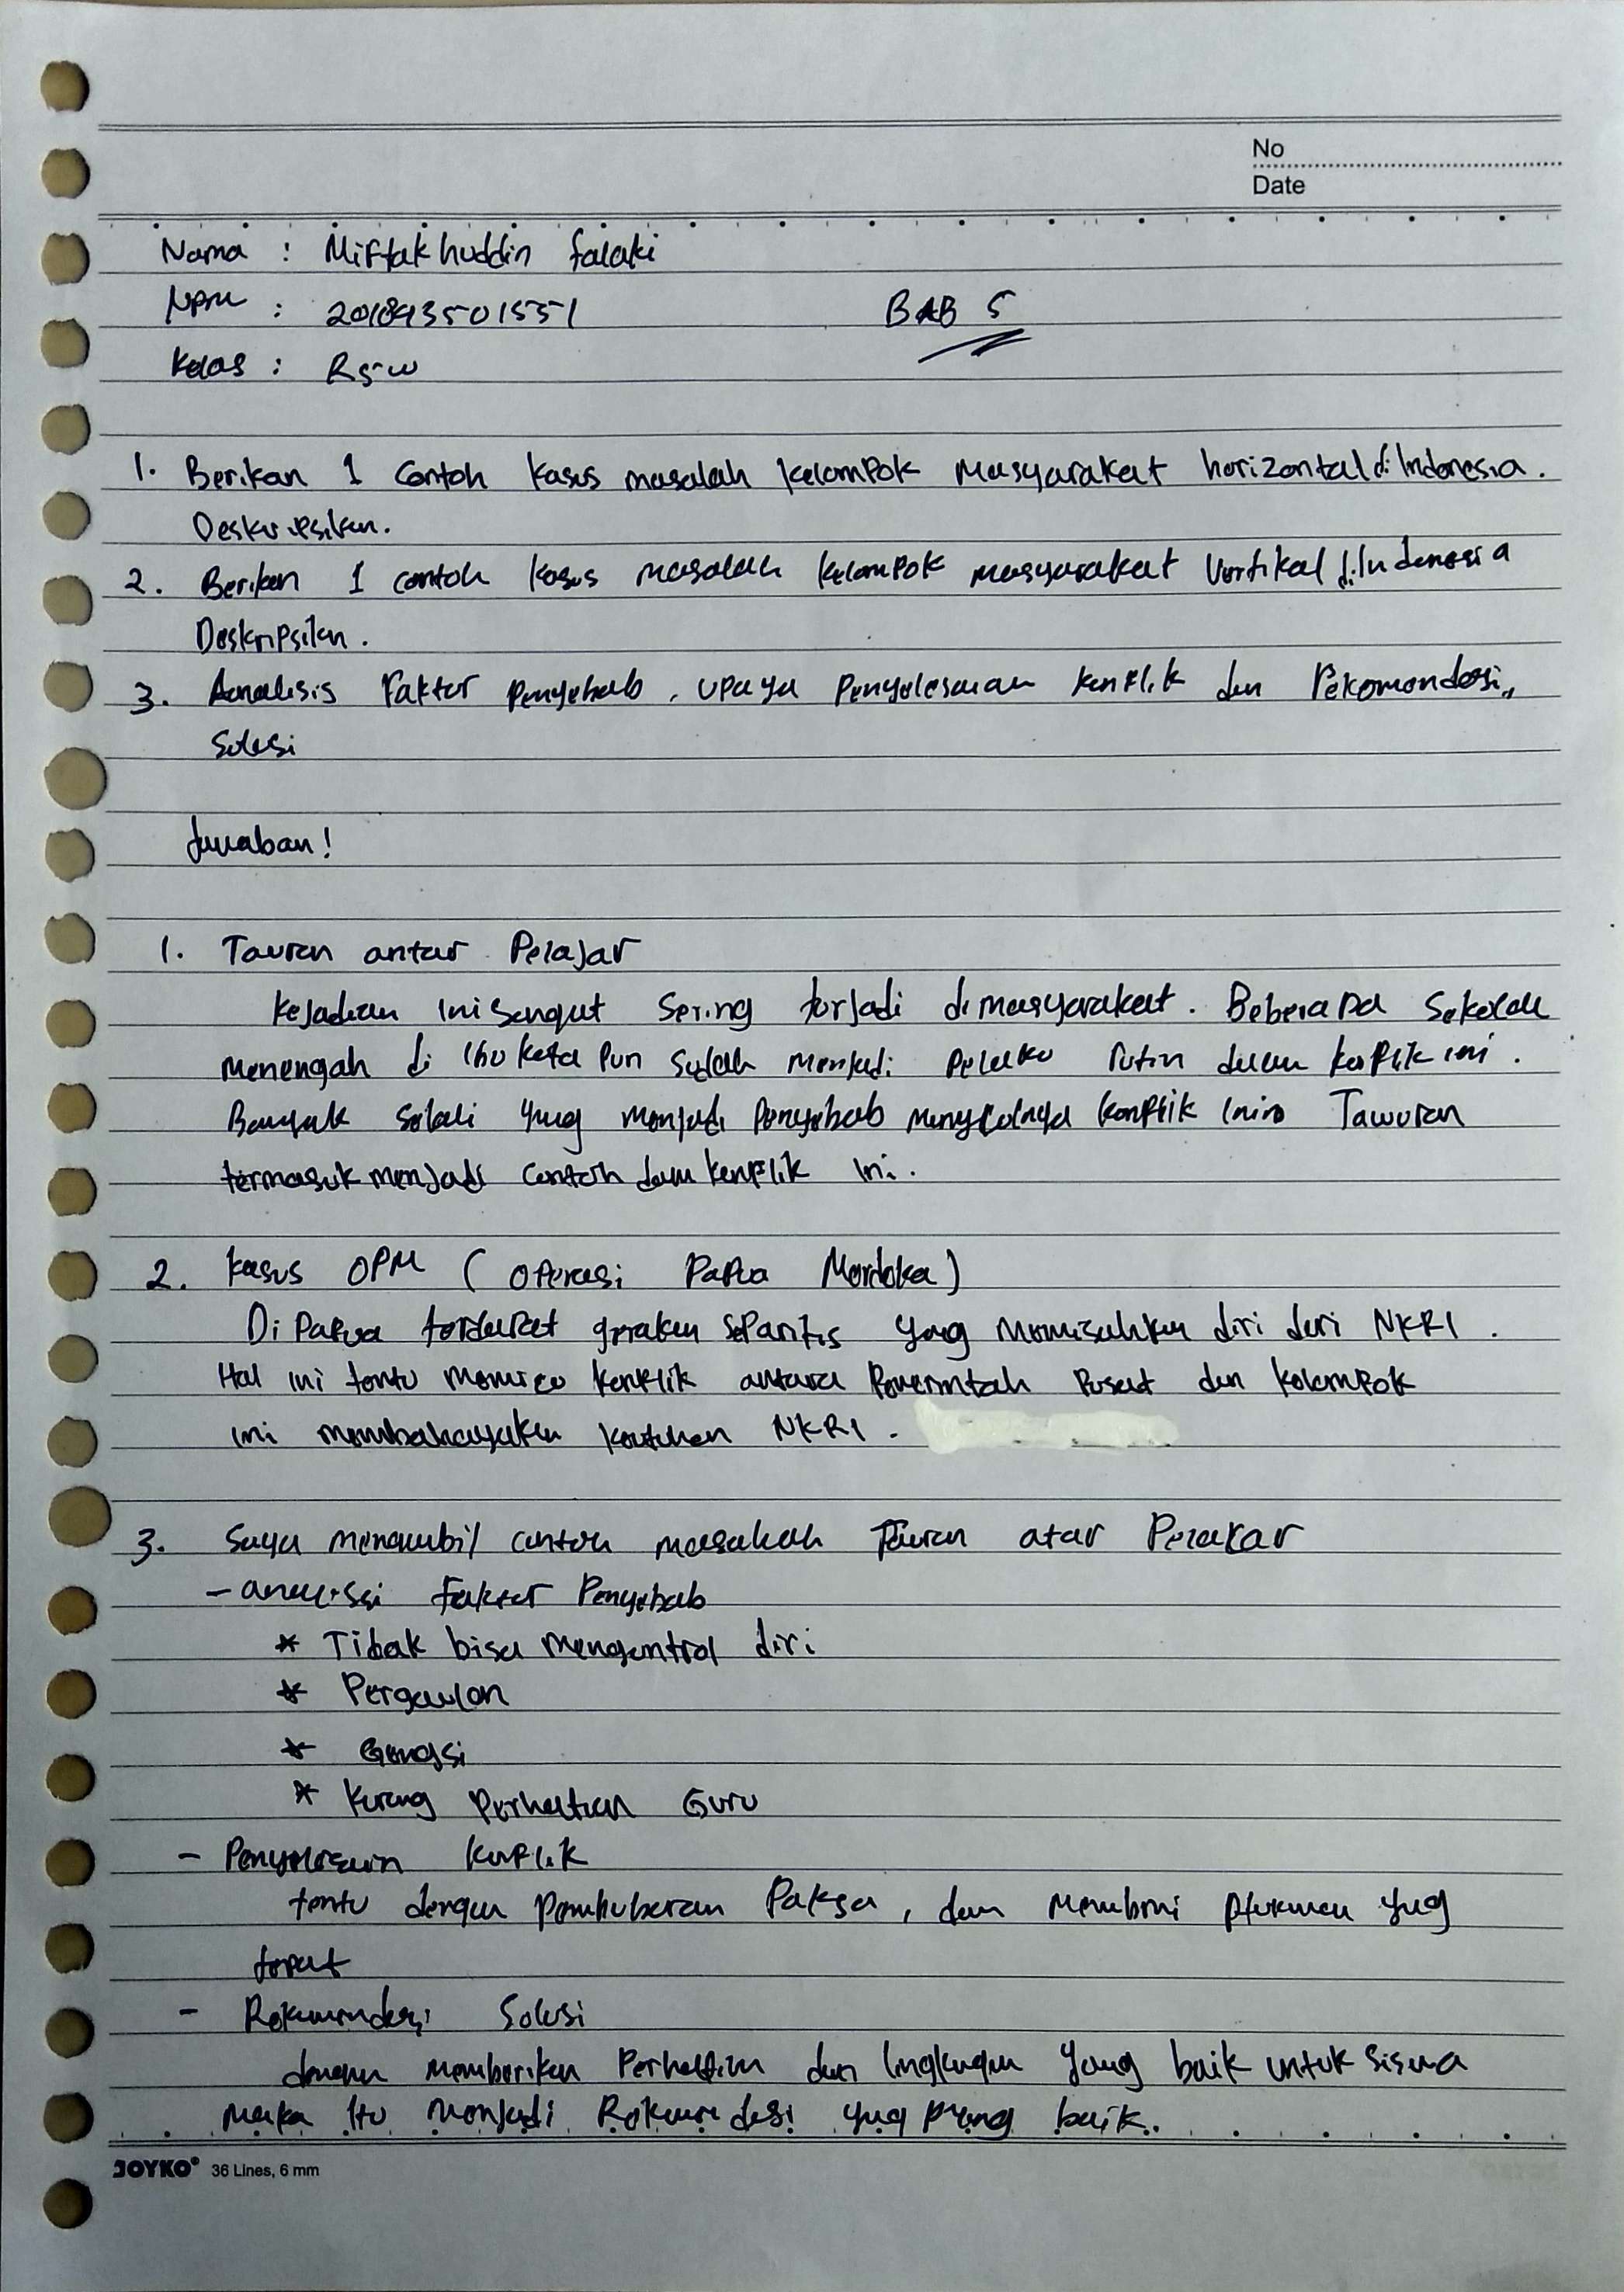 No
Date
Nama : Miftakhuddin falaki
Npm : 201843501551
BAB 5
Kelas : R5w
1. Berikan 1 Contoh Kasus masalah kelompok Masyarakat horizontal di Indonesia.
Deskripsikan.
2. Berikan 1 contoh kasus masalah kelompok masyarakat Vertikal di Indonesia
Deskripsikan.
3. Analisis Faktor Penyebab, upaya Penyelesaian konflik dan Rekomendasi,,
Solusi
Jawaban!
1. Tauran antar Pelajar
Kejadian ini sangat Sering terjadi dimasyarakat. Beberapa Sekolah
menengah di ibu kota Pun sudah menjadi Pelaku rutin dalam konflik ini.
Banyak sekali yang menjadi Penyebab konflik ini Tawuran
termasuk menjadi contoh dam konflik ini.
2. Kasus OPM ( Operasi Papua Merdeka)
Di Papua terdapat gerakan separitis yang memisahkan diri dari NKRI.
Hal ini tentu memicu konflik antara Pemerintah Pusat dan kelompok
ini membahayakan keutuhan NKRI.
3. Saya mengambil contoh masalah Tauran atar Pelajar
- analissi faktor Penyebab
* Tidak bisa mengontrol diri
* Pergaulan
* Gengsi
* Kurang Perhatian Guru
- Penyelesain Konflik
tentu dengan Pembubaran Paksa, dan Memberi yug
tepat
- Rekomendasi Solusi
dengan memberikan Perhatian dan lingkugan yang baik untuk siswa
maka itu menjadi Rekomendasi yug baik.
JOYKO 36 Lines, 6 mm